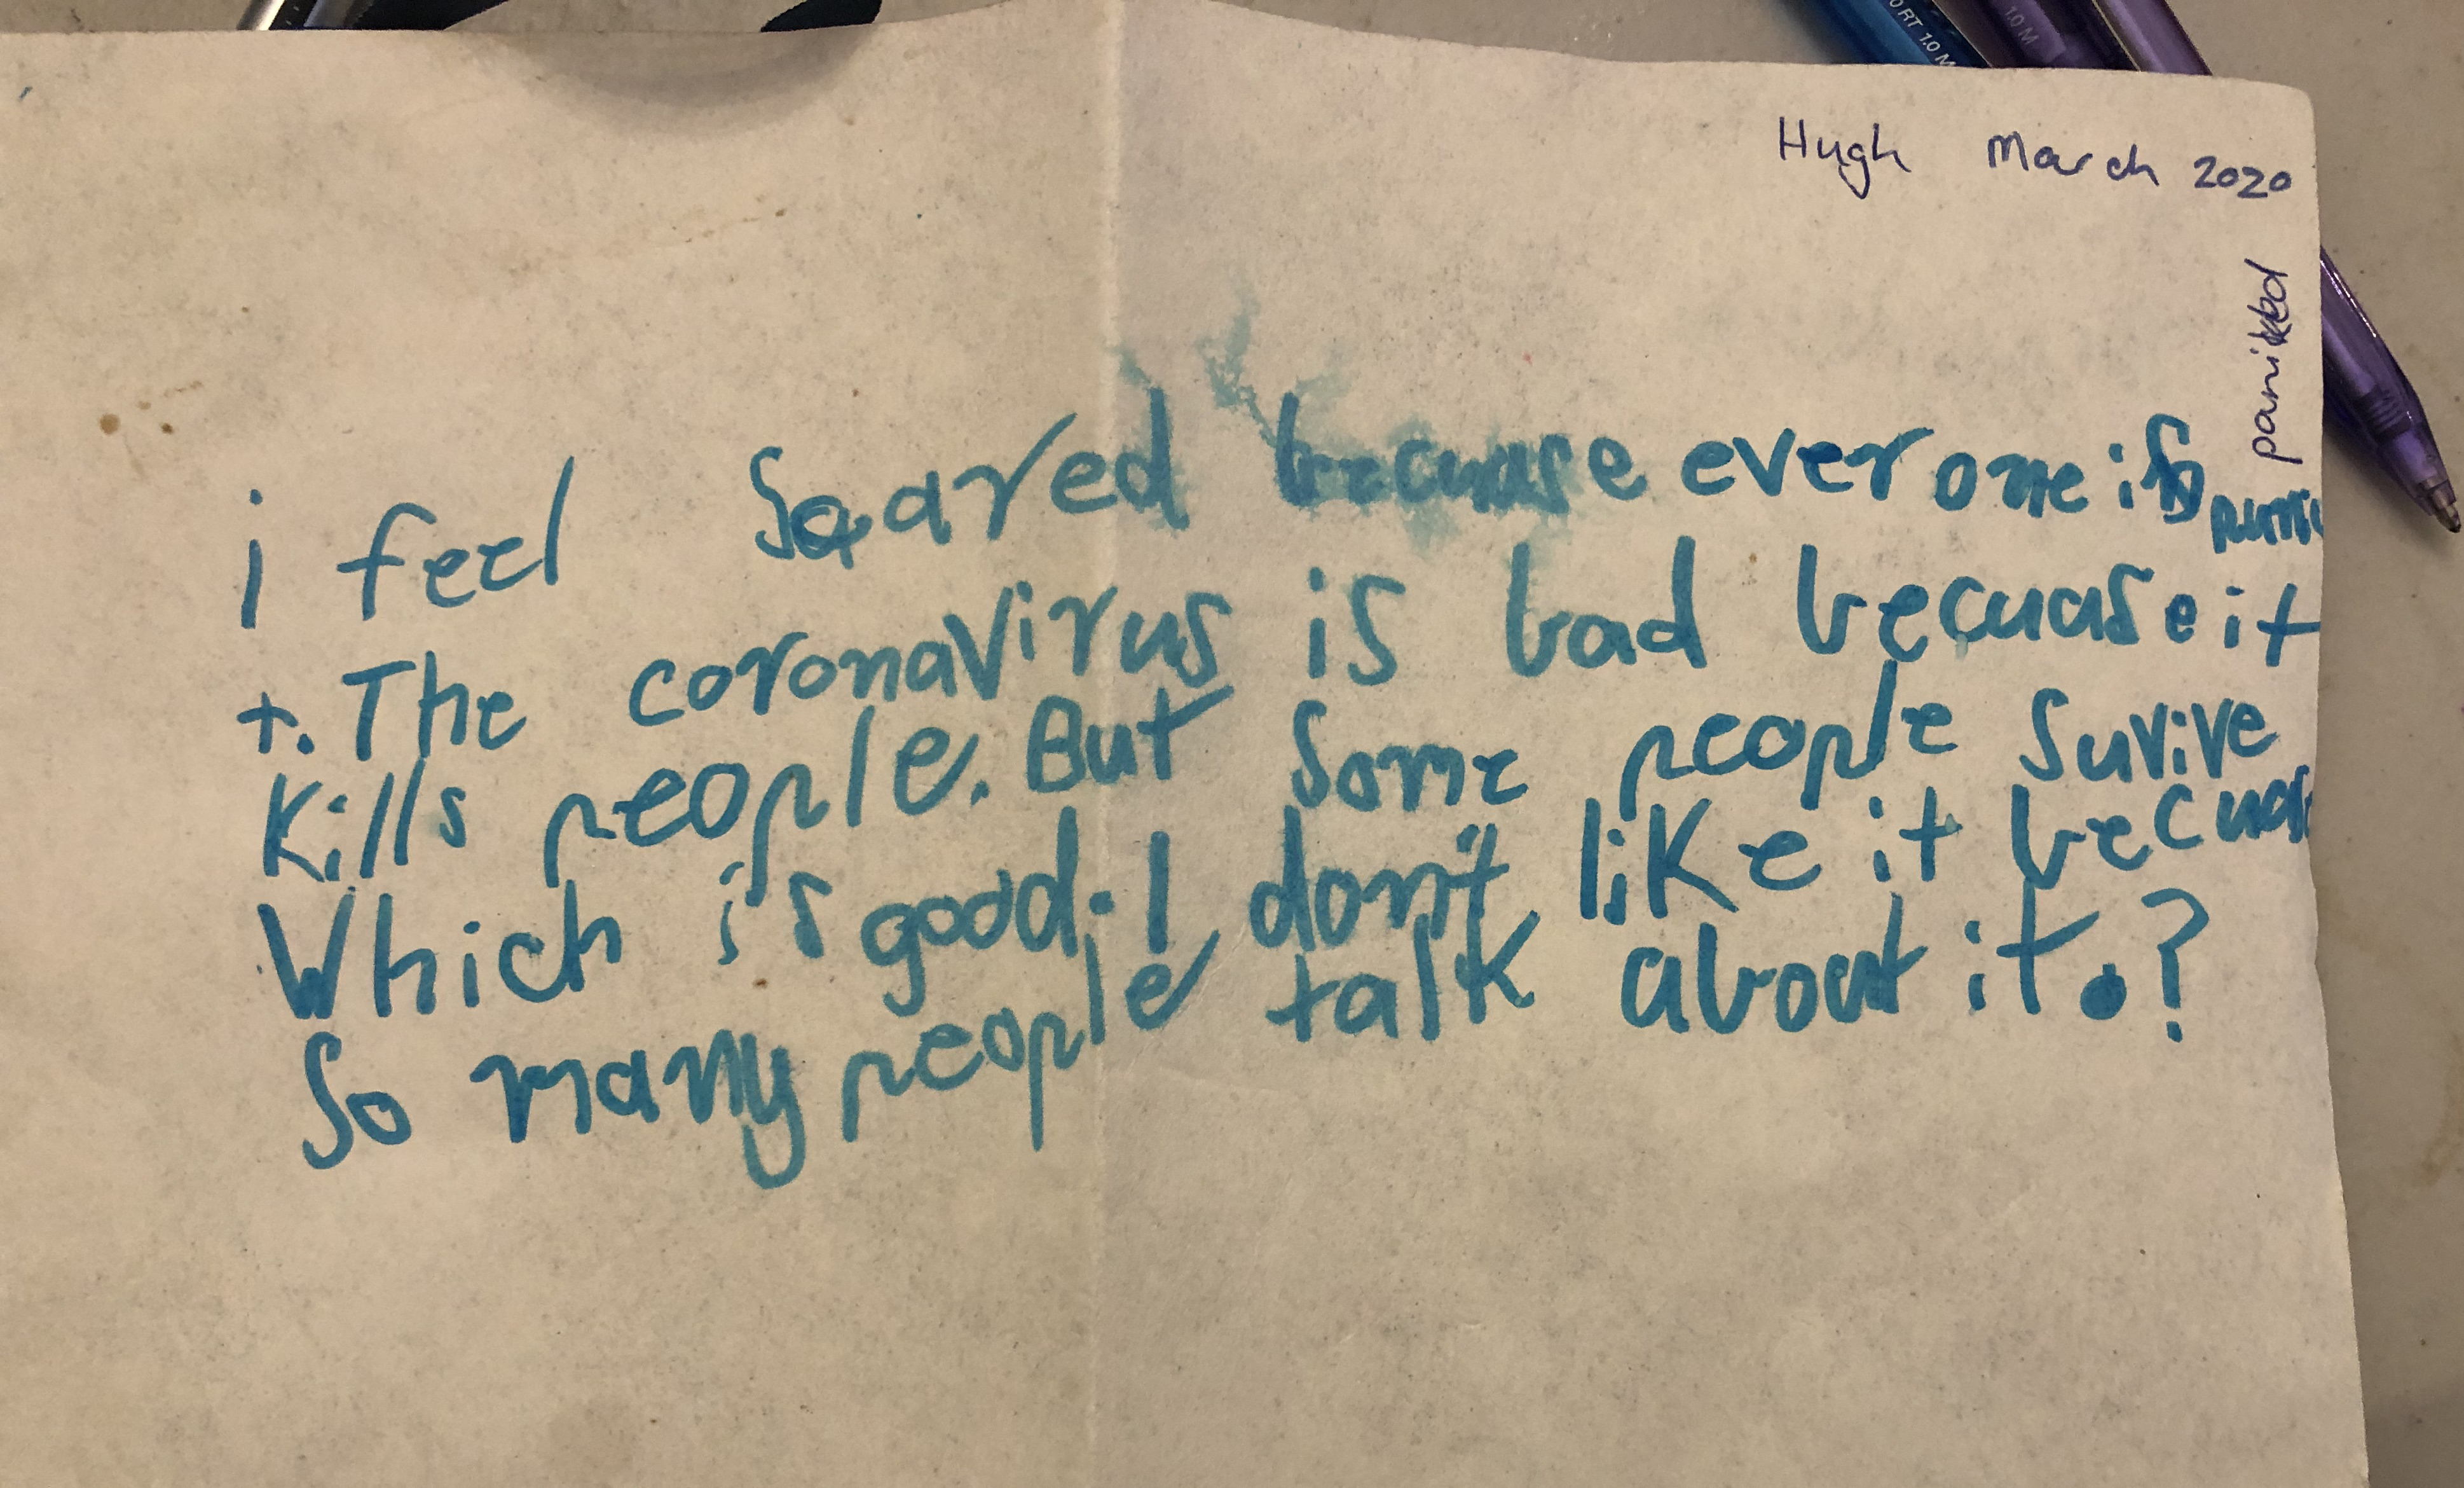 Hugh March 2020
panikked
i feel scared becuase ever one is
t. The coronavirus is bad becuase it
kills people. But some people survive
Which is good. I don't like it becuase
So many people talk about it.?
1.0 M
RT 1.0 M